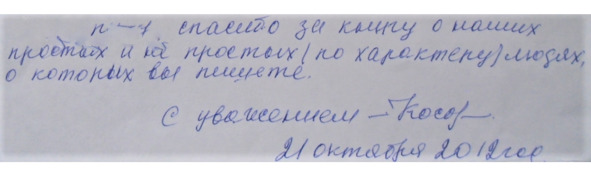 спасибо за книгу о наших
простых и не простых (по характеру) людях,
о которых вы пишете.
С уважением –
21 октября 2012 год